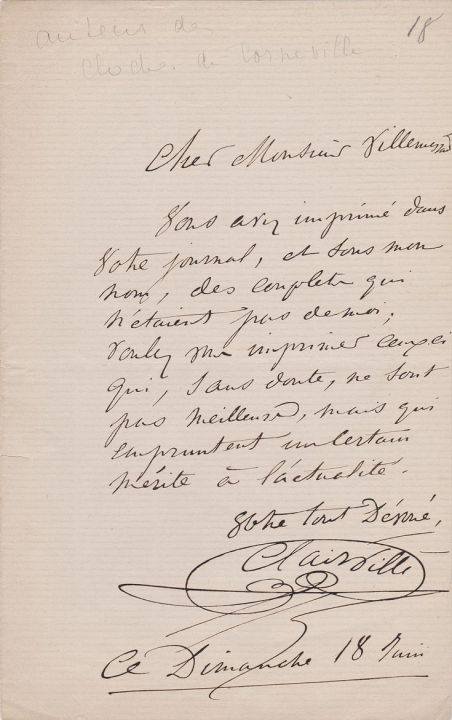 18
auteur des
cloches de Corneville
Cher Monsieur Villemessant
Vous avez imprimé dans
votre journal, et sous mon
nom, des couplets qui
n'étaient pas de moi;
voulez me imprimer ceux ci
qui, sans doute, ne sont
pas meilleurs, mais qui
empruntent un certain
mérite à l'actualité.
Votre tout Dévoué,
Clairville
Ce Dimanche 18 Juin